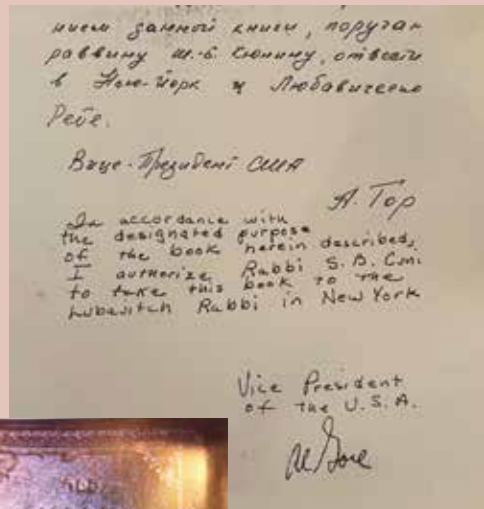 нием данной книги, поручаю
раввину Ш.-Б. Кюнину, отвезти
в Нью-Йорк к Любавическо
Ребе.
Вице-Президент США
А. Гор
In accordance with
the designated purpose
of the book herein described,
I authorize Rabbi S. B. Cuni
to take this book to the
Lubavitch Rabbi in New York
Vice President
of the U.S.A.
Al Gore